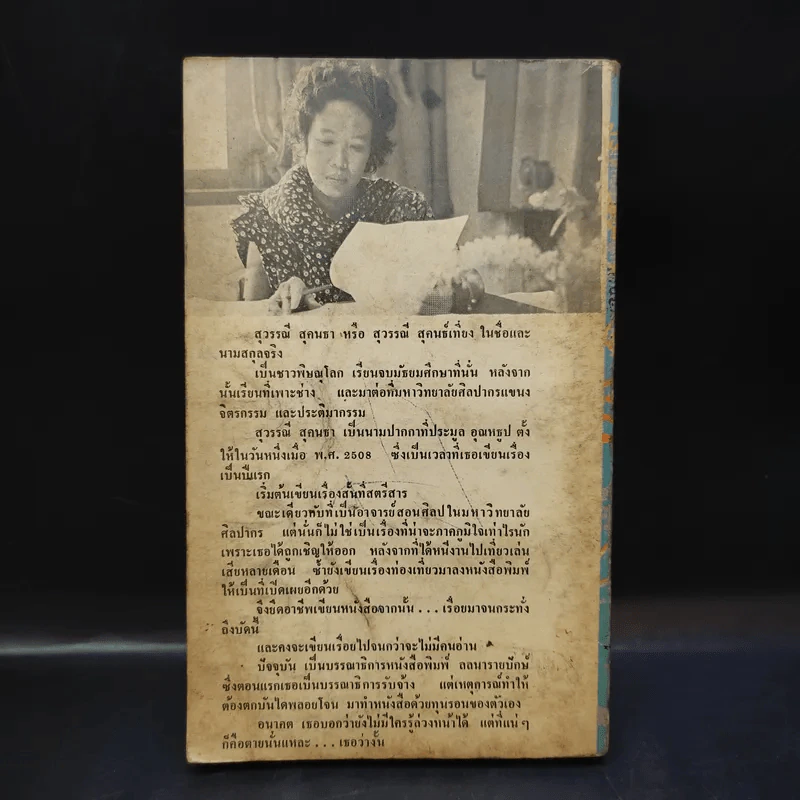 สุวรรณี สุคนธา หรือ สุวรรณี สุคนธ์เที่ยง ในชื่อและ
นามสกุลจริง
เป็นชาวพิษณุโลก เรียนจบมัธยมศึกษาที่นั่น หลังจาก
นั้นเรียนที่เพาะช่าง และมาต่อที่มหาวิทยาลัยศิลปากรแขนง
จิตรกรรม และประติมากรรม
สุวรรณี สุคนธา เป็นนามปากกาที่ประมูล อุณหธูป ตั้ง
ให้ในวันหนึ่งเมื่อ พ.ศ. 2508 ซึ่งเป็นเวลาที่เธอเขียนเรื่อง
เป็นปีแรก
เริ่มต้นเขียนเรื่องสั้นที่สตรีสาร
ขณะเดียวกับที่เป็นอาจารย์สอนศิลปในมหาวิทยาลัย
ศิลปากร แต่นั่นก็ไม่ใช่เป็นเรื่องที่น่าจะภาคภูมิใจเท่าไรนัก
เพราะเธอได้ถูกเชิญให้ออก หลังจากที่ได้หนีงานไปเที่ยวเล่น
เสียหลายเดือน ซ้ำยังเขียนเรื่องท่องเที่ยวมาลงหนังสือพิมพ์
ให้เป็นที่เปิดเผยอีกด้วย
จึงยึดอาชีพเขียนหนังสือจากนั้น ... เรื่อยมาจนกระทั่ง
ถึงบัดนี้
และคงจะเขียนเรื่อยไปจนกว่าจะไม่มีคนอ่าน
ปัจจุบัน เป็นบรรณาธิการหนังสือพิมพ์ ลลนารายปักษ์
ซึ่งตอนแรกเธอเป็นบรรณาธิการรับจ้าง แต่เหตุการณ์ทำให้
ต้องตกบันไดพลอยโจน มาทำหนังสือด้วยทุนรอนของตัวเอง
อนาคต เธอบอกว่ายังไม่มีใครรู้ล่วงหน้าได้ แต่ที่แน่ ๆ
ก็คือตายนั่นแหละ ... เธอว่างั้น